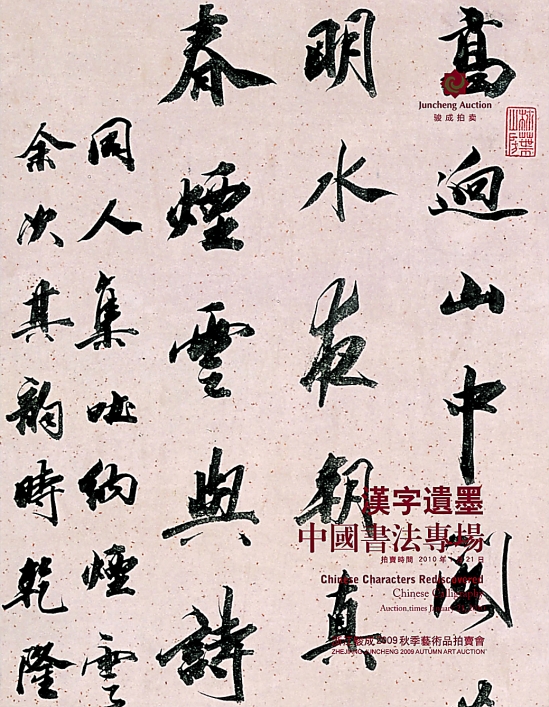 高迥山中測
明水夜朝真
春煙雲與詩
同人集呲納煙雲
余次其韵時乾隆
Juncheng Auction
骏成拍卖
漢字遺墨
中國書法專場
拍賣時間 2010年1月21日
Chinese Characters Rediscovered
Chinese Calligraphy
Auction,times January
浙江骏成2009秋季藝術品拍賣會
ZHEJIANG JUNCHENG 2009 AUTUMN ART AUCTION